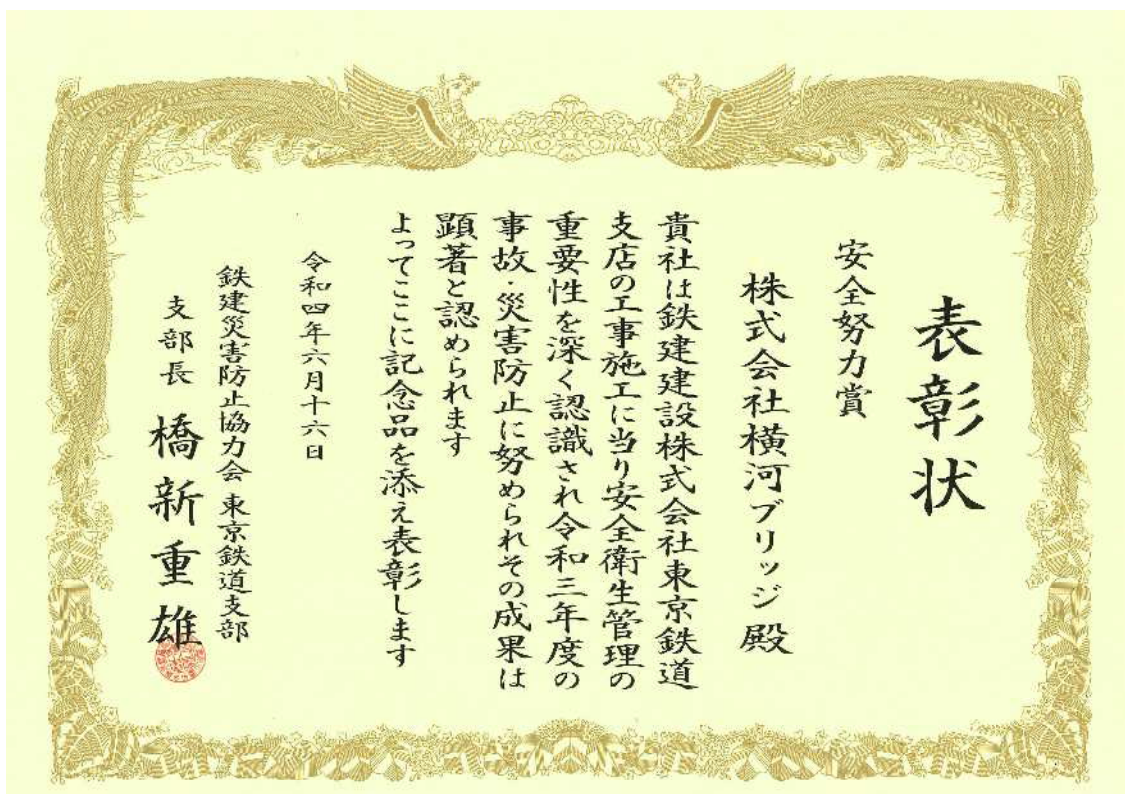 表彰状
安全努力賞
株式会社横河ブリッジ殿
貴社は鉄建建設株式会社東京鉄道
支店の工事施工に当り安全衛生管理の
重要性を深く認識され令和三年度の
事故・災害防止に努められその成果は
顕著と認められます
よってここに記念品を添え表彰します
令和四年六月十六日
鉄建災害防止協力会 東京鉄道支部
支部長 橋新重雄